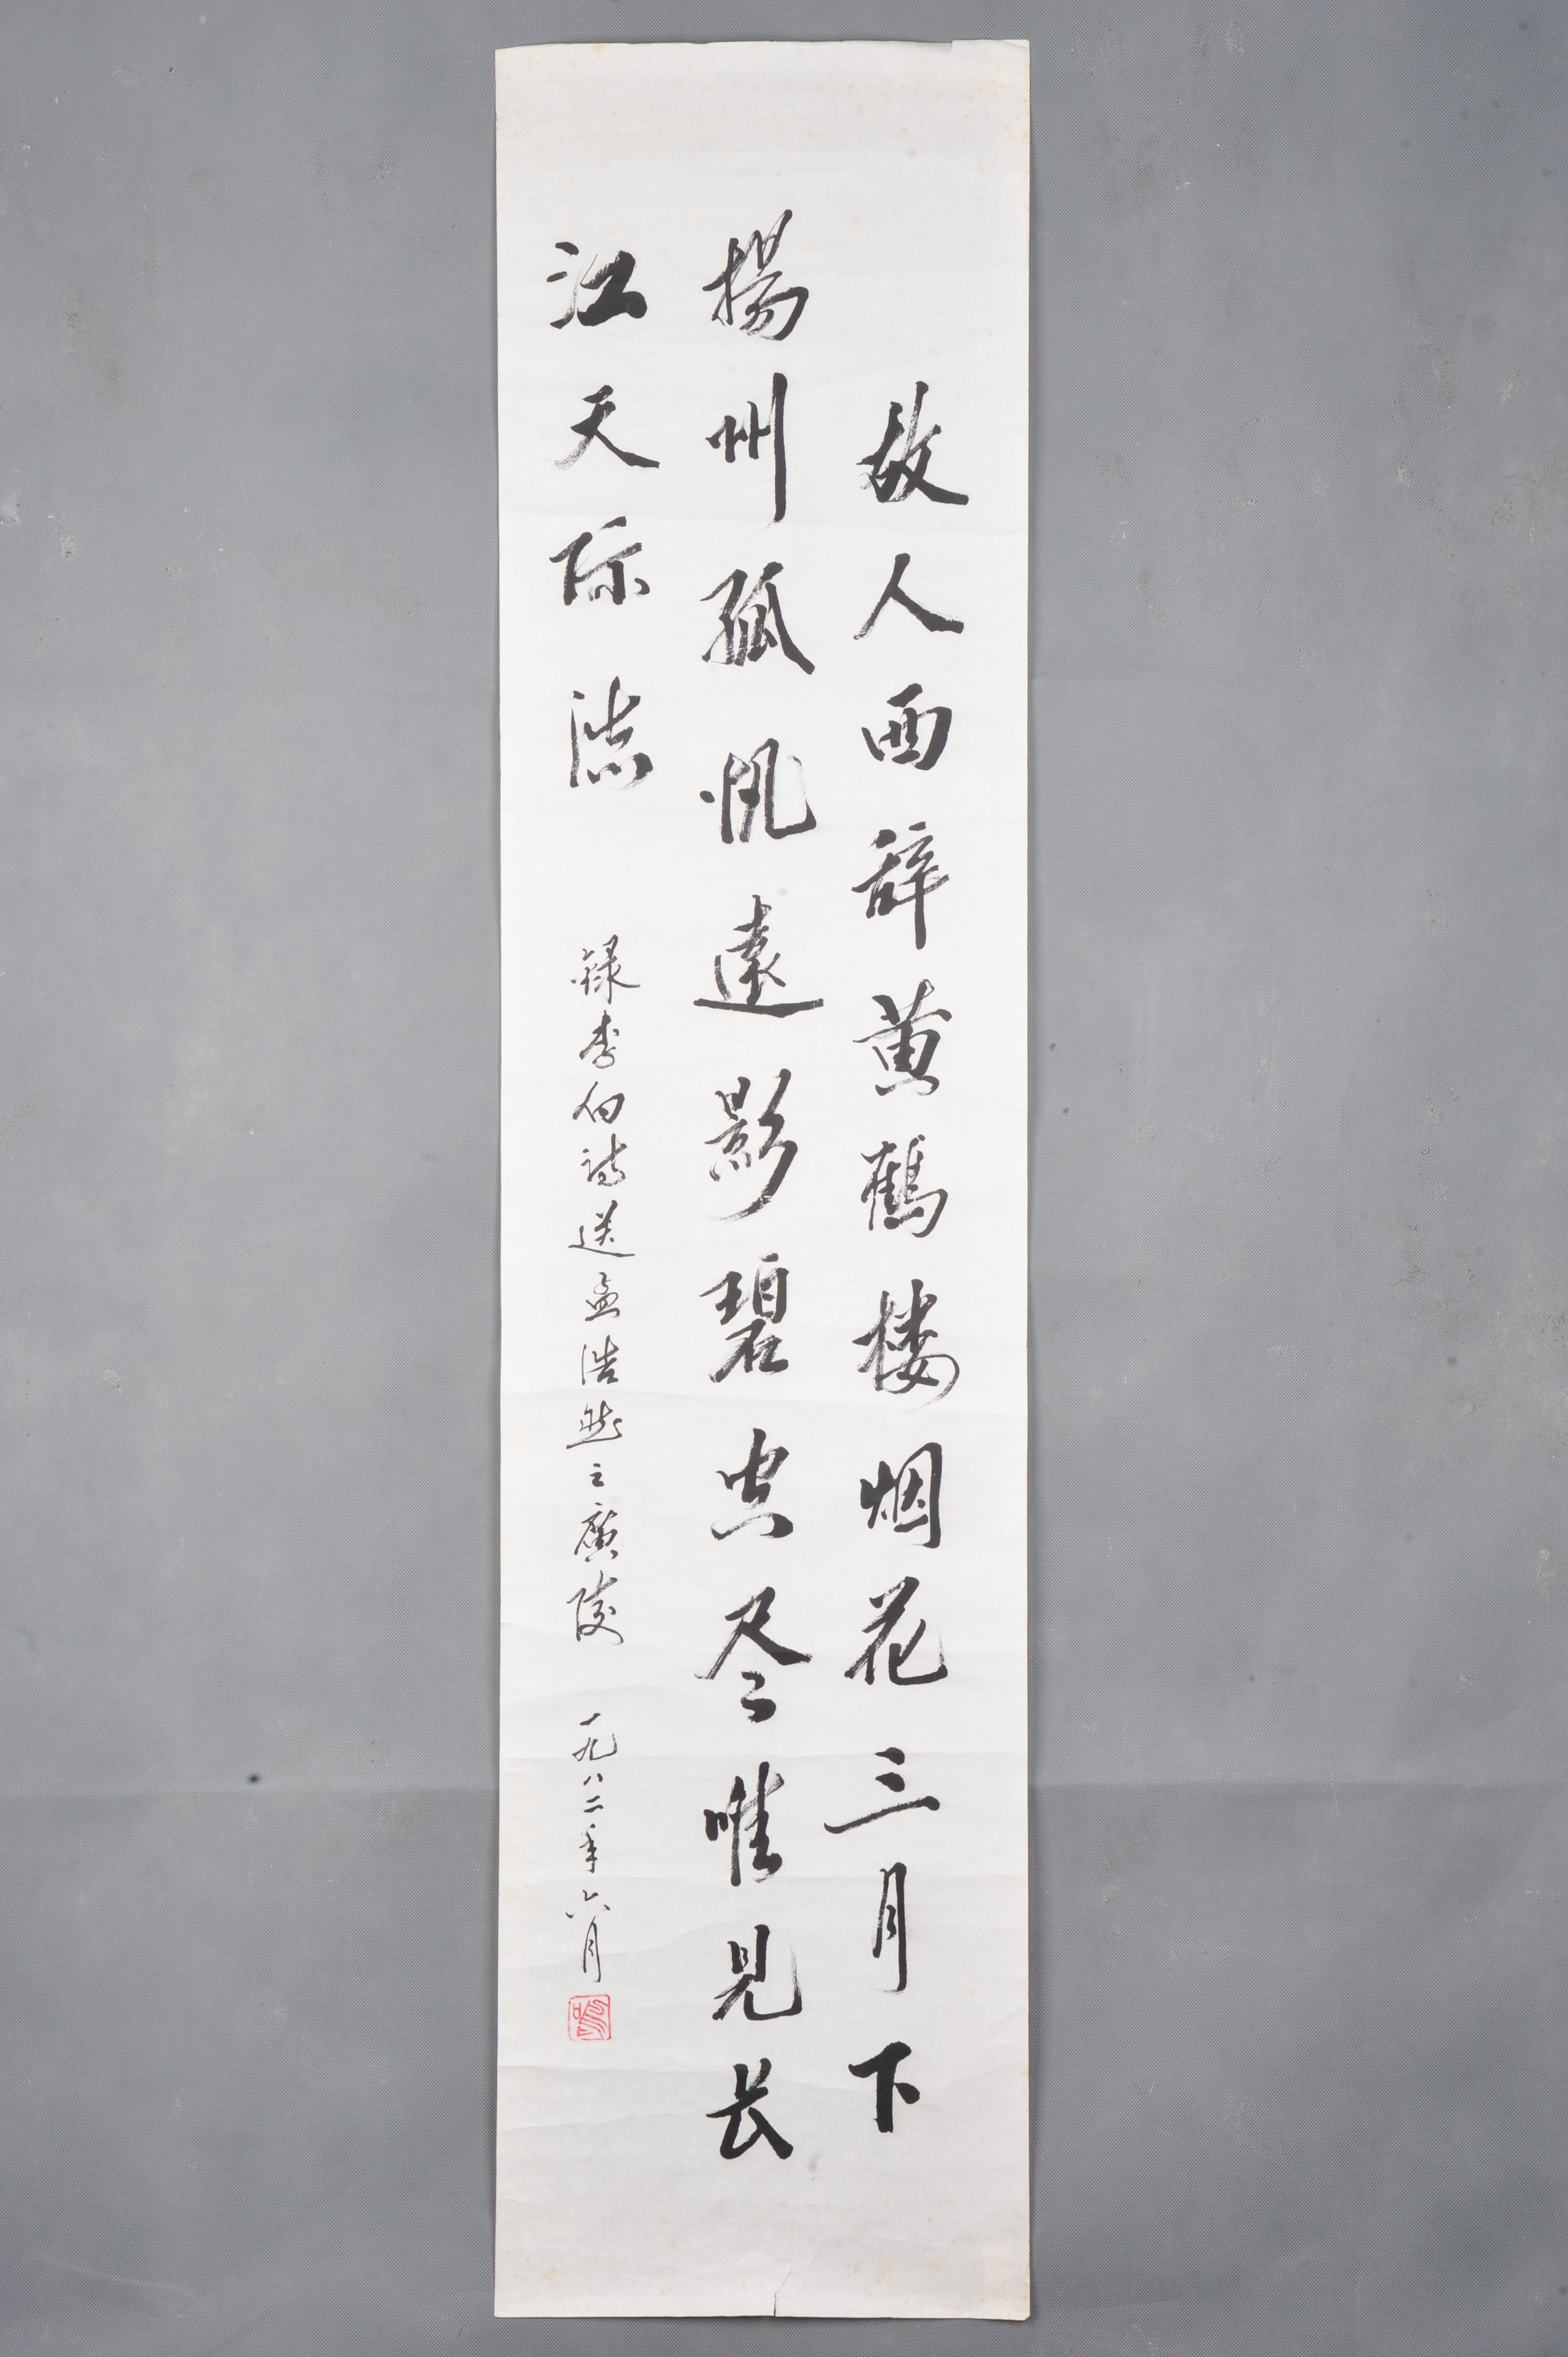 故人西辞黄鹤楼烟花三月下
揚州孤帆遠影碧空尽唯见长
江天际流
録李白诗送孟浩然之廣陵 一九八二年六月
鳴